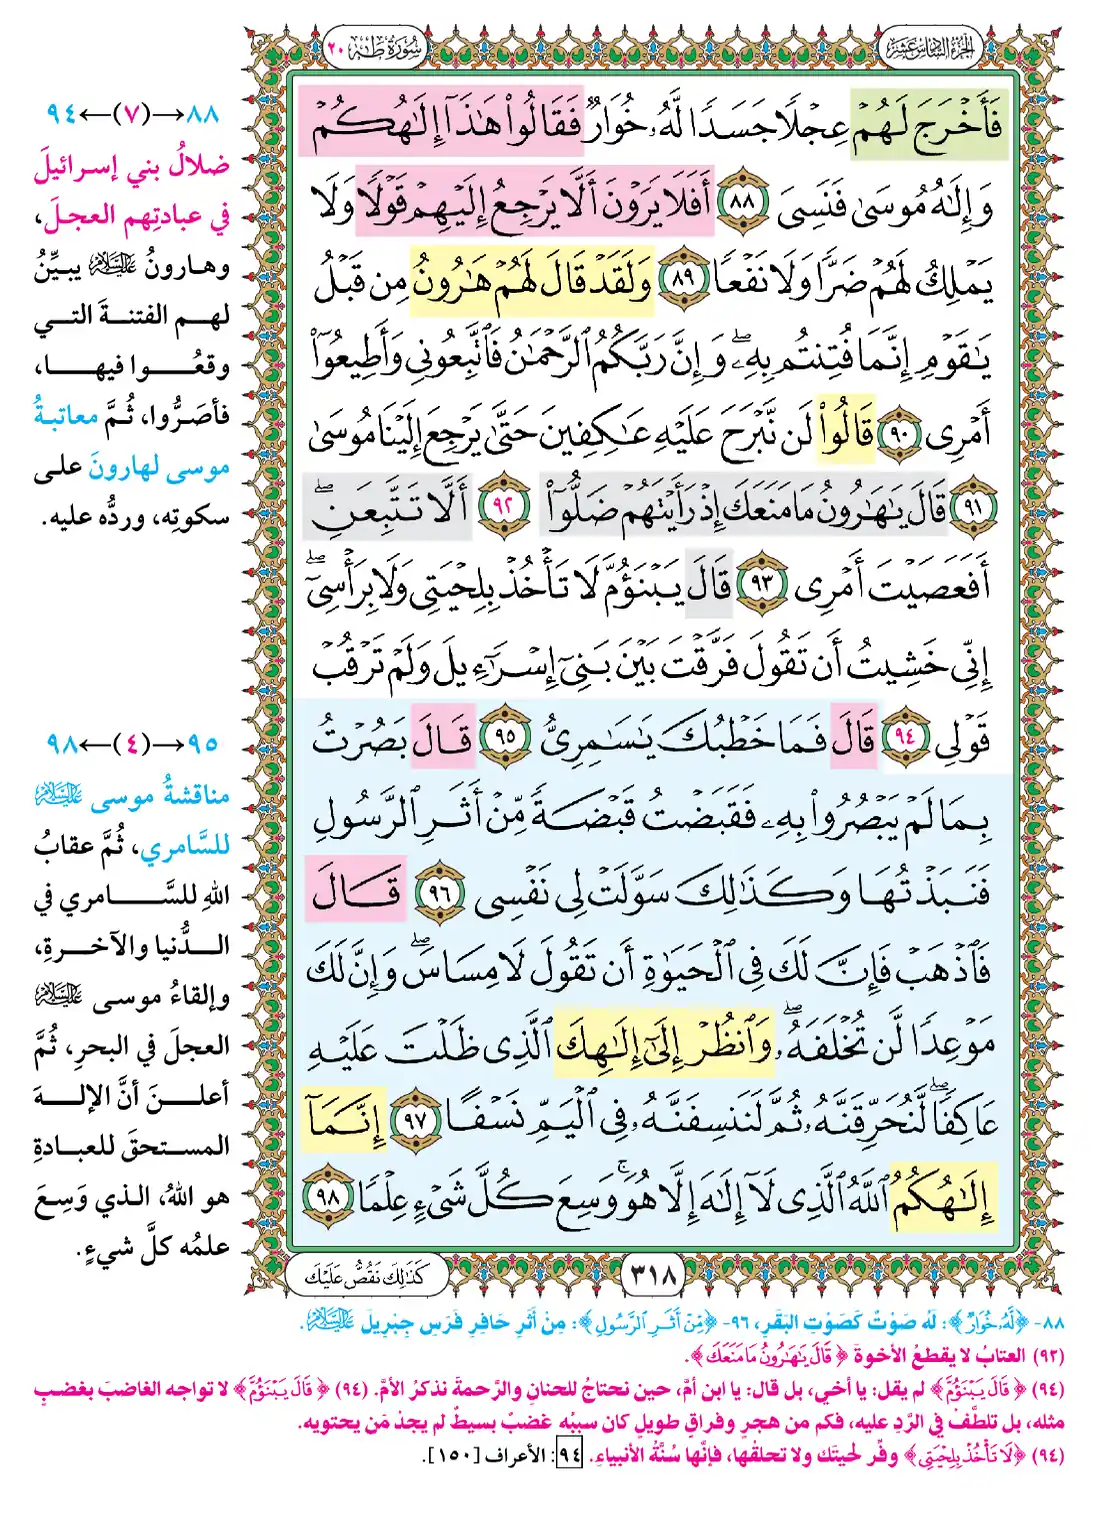 الجزء السادس عشر
سورة طه ٢٠
فَأَخْرَجَ لَهُمْ عِجْلًا جَسَدًا لَّهُۥ خُوَارٌ فَقَالُوا۟ هَـٰذَآ إِلَـٰهُكُمْ
وَإِلَـٰهُ مُوسَىٰ فَنَسِىَ ٨٨ أَفَلَا يَرَوْنَ أَلَّا يَرْجِعُ إِلَيْهِمْ قَوْلًا وَلَا
يَمْلِكُ لَهُمْ ضَرًّا وَلَا نَفْعًا ٨٩ وَلَقَدْ قَالَ لَهُمْ هَـٰرُونُ مِن قَبْلُ
يَـٰقَوْمِ إِنَّمَا فُتِنتُم بِهِۦ ۖ وَإِنَّ رَبَّكُمُ ٱلرَّحْمَـٰنُ فَٱتَّبِعُونِى وَأَطِيعُوٓا۟
أَمْرِى ٩٠ قَالُوا۟ لَن نَّبْرَحَ عَلَيْهِ عَـٰكِفِينَ حَتَّىٰ يَرْجِعَ إِلَيْنَا مُوسَىٰ
٩١ قَالَ يَـٰهَـٰرُونُ مَا مَنَعَكَ إِذْ رَأَيْتَهُمْ ضَلُّوٓا۟ ٩٢ أَلَّا تَتَّبِعَنِ ۖ
أَفَعَصَيْتَ أَمْرِى ٩٣ قَالَ يَبْنَؤُمَّ لَا تَأْخُذْ بِلِحْيَتِى وَلَا بِرَأْسِىٓ ۖ
إِنِّى خَشِيتُ أَن تَقُولَ فَرَّقْتَ بَيْنَ بَنِىٓ إِسْرَٰٓءِيلَ وَلَمْ تَرْقُبْ
قَوْلِى ٩٤ قَالَ فَمَا خَطْبُكَ يَـٰسَـٰمِرِىُّ ٩٥ قَالَ بَصُرْتُ
بِمَا لَمْ يَبْصُرُوا۟ بِهِۦ فَقَبَضْتُ قَبْضَةً مِّنْ أَثَرِ ٱلرَّسُولِ
فَنَبَذْتُهَا وَكَذَٰلِكَ سَوَّلَتْ لِى نَفْسِى ٩٦ قَالَ
فَٱذْهَبْ فَإِنَّ لَكَ فِى ٱلْحَيَوٰةِ أَن تَقُولَ لَا مِسَاسَ ۖ وَإِنَّ لَكَ
مَوْعِدًا لَّن تُخْلَفَهُۥ ۖ وَٱنظُرْ إِلَىٰٓ إِلَـٰهِكَ ٱلَّذِى ظَلْتَ عَلَيْهِ
عَاكِفًا ۖ لَّنُحَرِّقَنَّهُۥ ثُمَّ لَنَنسِفَنَّهُۥ فِى ٱلْيَمِّ نَسْفًا ٩٧ إِنَّمَآ
إِلَـٰهُكُمُ ٱللَّهُ ٱلَّذِى لَآ إِلَـٰهَ إِلَّا هُوَ ۚ وَسِعَ كُلَّ شَىْءٍ عِلْمًا ٩٨
٣١٨
كَذَٰلِكَ نَقُصُّ عَلَيْكَ
٨٨→(٧)←٩٤
ضلالُ بني إسرائيلَ
في عبادتِهم العجلَ،
وهارونُ عليه السلام يبيِّنُ
لهم الفتنةَ التي
وقعُوا فيها،
فأصَرُّوا، ثُمَّ معاتبةُ
موسى لهارونَ على
سكوتِه، وردُّه عليه.
٩٥→(٤)←٩٨
مناقشةُ موسى عليه السلام
للسَّامري، ثُمَّ عقابُ
اللهِ للسَّامري في
الدُّنيا والآخرةِ،
وإلقاءُ موسى عليه السلام
العجلَ في البحرِ، ثُمَّ
أعلنَ أنَّ الإلهَ
المستحقَ للعبادةِ
هو اللهُ، الذي وَسِعَ
علمُه كلَّ شيءٍ.
٨٨- ﴿لَّهُۥ خُوَارٌ﴾: لَهُ صَوْتٌ كَصَوْتِ البَقَرِ، ٩٦- ﴿مِّنْ أَثَرِ ٱلرَّسُولِ﴾: مِنْ أَثَرِ حَافِرِ فَرَسِ جِبْرِيلَ عليه السلام.
(٩٢) العتابُ لا يقطعُ الأخوةَ ﴿قَالَ يَـٰهَـٰرُونُ مَا مَنَعَكَ﴾.
(٩٤) ﴿قَالَ يَبْنَؤُمَّ﴾ لم يقل: يا أخي، بل قال: يا ابن أمَّ، حين نحتاجُ للحنانِ والرَّحمةِ نذكرُ الأمَّ. (٩٤) ﴿قَالَ يَبْنَؤُمَّ﴾ لا تواجه الغاضبَ بغضبٍ
مثله، بل تلطَّفْ في الرَّدِ عليه، فكم من هجرٍ وفراقٍ طويلٍ كان سببُه غضبٌ بسيطٌ لم يجدْ مَن يحتويه.
(٩٤) ﴿لَا تَأْخُذْ بِلِحْيَتِى﴾ وفِّر لحيتَك ولا تحلقْها، فإنَّها سُنَّةُ الأنبياءِ. ٩٤: الأعراف [١٥٠].